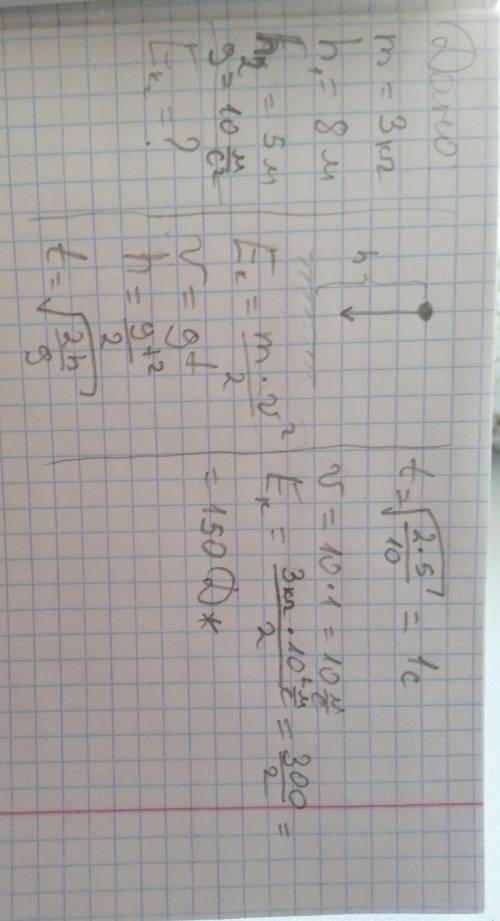 Дано:
m = 3 кг
h₁ = 8 м
h₂ = 5 м
g = 10 м/с²
Eк = ?
h
Eк = m · v² / 2
v = gt
h = gt² / 2
t = √(2h / g)
t = √(2·5 / 10) = 1с
v = 10·1 = 10 м/с
Eк = 3кг · 10² м/с / 2 = 300 / 2 =
= 150 Дж